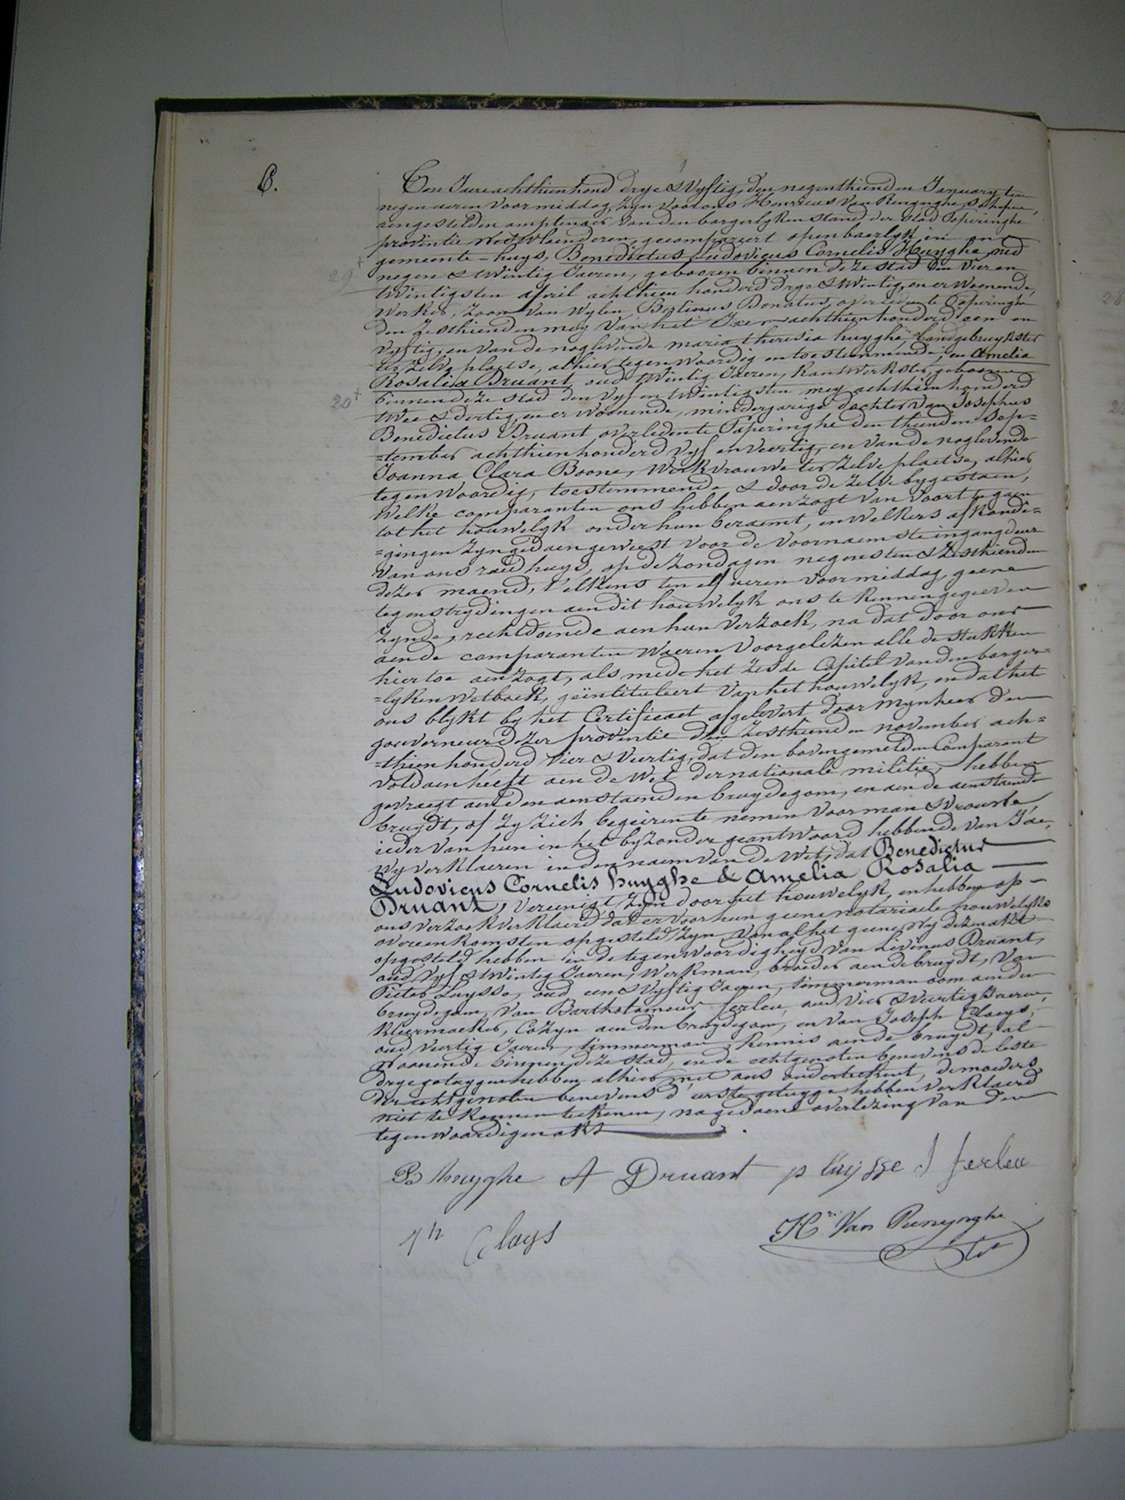 6.
Ten Jaere achthienhond drye & Vyftig, den negenthienden January, ten
negen ueren Voormiddag, zyn voor ons Henricus Van Renynghe, Schepen,
aengestelden amptenaer van den borgerlyken stand der Stad Poperinghe
provintie West Vlaenderen, gecompareert openbaerlyk in on
gemeente-huys, Benedictus Ludovicus Cornelis Huyghe, oud
29+
negen & twintig Jaeren, gebooren binnen deze stad den Vier en
twintigsten april achthien honderd drye & twintig, en er Woonende,
Werker, Zoon van Wylen Bertinus Donatus, overleden te Poperinghe
den zesthienden mey van het Jaer achthien honderd een en
Vyftig, en van de naglevende maria theresia huyghe, Landgebruykster
ter zelve plaetse, alhier tegenwoordig en toestemmende; en Amelia
Rosalia Druant, oud twintig Jaeren, kantwerkster, gebooren
20+
binnen deze stad den Vyf en twintigsten mey achthien honderd
twee & dertig, en er Woonende, minderjarige dochter van Josephus
Benedictus Druant, overleden te Poperinghe den thienden Sep=
=tember achthien honderd Vyf en Veertig, en van de naglevende
Joanna Clara Boone, Werkvrouwe ter zelve plaetse, alhier
tegenwoordig, toestemmende & door de zelve bygestaen,
Welke comparanten ons hebben aenzogt van Voort te gaen
tot het houwelyk onder hun beraemt, en Welkers afkondi=
=gingen zyn gedaen geweest voor de Voornaemste ingangdeur
van ons raedhuys, op de Zondagen negensten & Zesthienden
dezer maend, t'elkens ten elf ueren voormiddag, geene
tegenstrydingen aen dit houwelyk ons te kennen gegeven
zynde, rechtdoende aen hun Verzoek, na dat door ons
aen de comparanten Waeren Voorgelezen alle de stukken
hiertoe aenzogt, als mede het Zesde Capitel van den borger=
=lyken Wetboek, geïntituleert van het houwelyk, en dat het
ons blykt by het Certificaet afgelevert door Mynheer den
gouverneur dezer provintie den Zesthienden november ach=
=thien honderd Vier & Veertig, dat den bovengemelden Comparant
voldaen heeft aen de Wet der nationale militie, hebben
gevraegt aen den aenstaenden bruydegom, en aen de aenstaende
bruydt, of Zy Zich begeiren te nemen Voor man & Vrouwe,
ieder van hun in het byzonder geantwoord hebbende van Jae,
Wy verklaeren in den naem van de Wet, dat Benedictus
Ludovicus Cornelis huyghe & Amelia Rosalia
Druant, Vereenigt zyn door het houwelyk, en hebben op
ons verzoek verklaerd dat er voor hun geene notariaele houwelyks
overeenkomsten opgesteld zyn. Van al het geene Wy dezen akt
opgesteld hebben in de tegenwoordigheyd van Livinus Druant,
oud Vyf & twintig Jaeren, Werkman, broeder aen de bruydt, Van
Pieter Luysse, oud een & Vyftig Jaeren, timmerman oom aen den
bruydegom, Van Bartholomeus ferleu, oud Vier & Veertig Jaeren,
kleermaeker, Cozyn aen den bruydegom, en Van Joseph Claeys,
oud Veertig Jaeren, timmerman, kennis aen de bruydt, al
Woonende binnen deze stad, en de echtgenoten benevens de leste
drye getuygen hebben alhier met ons onderteekent, de moeders
der echtgenoten benevens d' eerste getuyge hebben verklaerd
niet te konnen teekenen, na gedaene overlezing van den
tegenwoordigen akt
B huyghe A Druant p luysse J ferleu
Jh Clays H^ri Van Renynghe